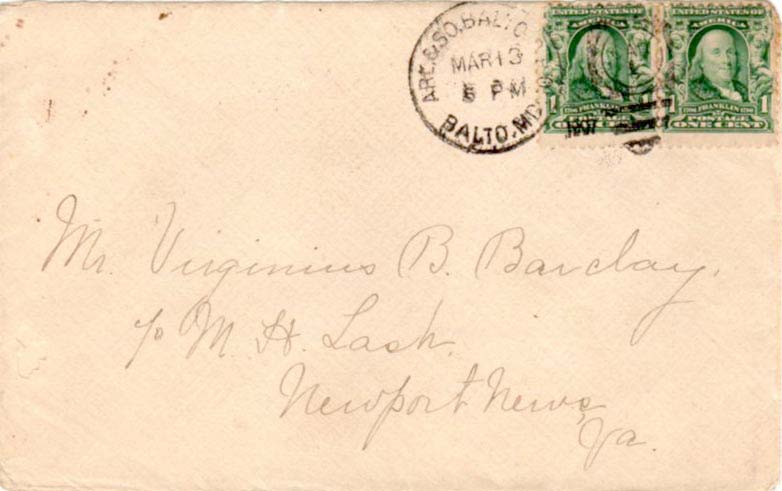 ARL.&SO.BALTO
MAR 13
5 PM
BALTO. MD.
1907
UNITED STATES OF
AMERICA
1 FRANKLIN 1
POSTAGE
ONE CENT
UNITED STATES OF
AMERICA
1706 FRANKLIN 1790
1 1
POSTAGE
ONE CENT
Mr. Virginius B. Barclay,
c/o M. H. Lash.
Newport News,
Va.